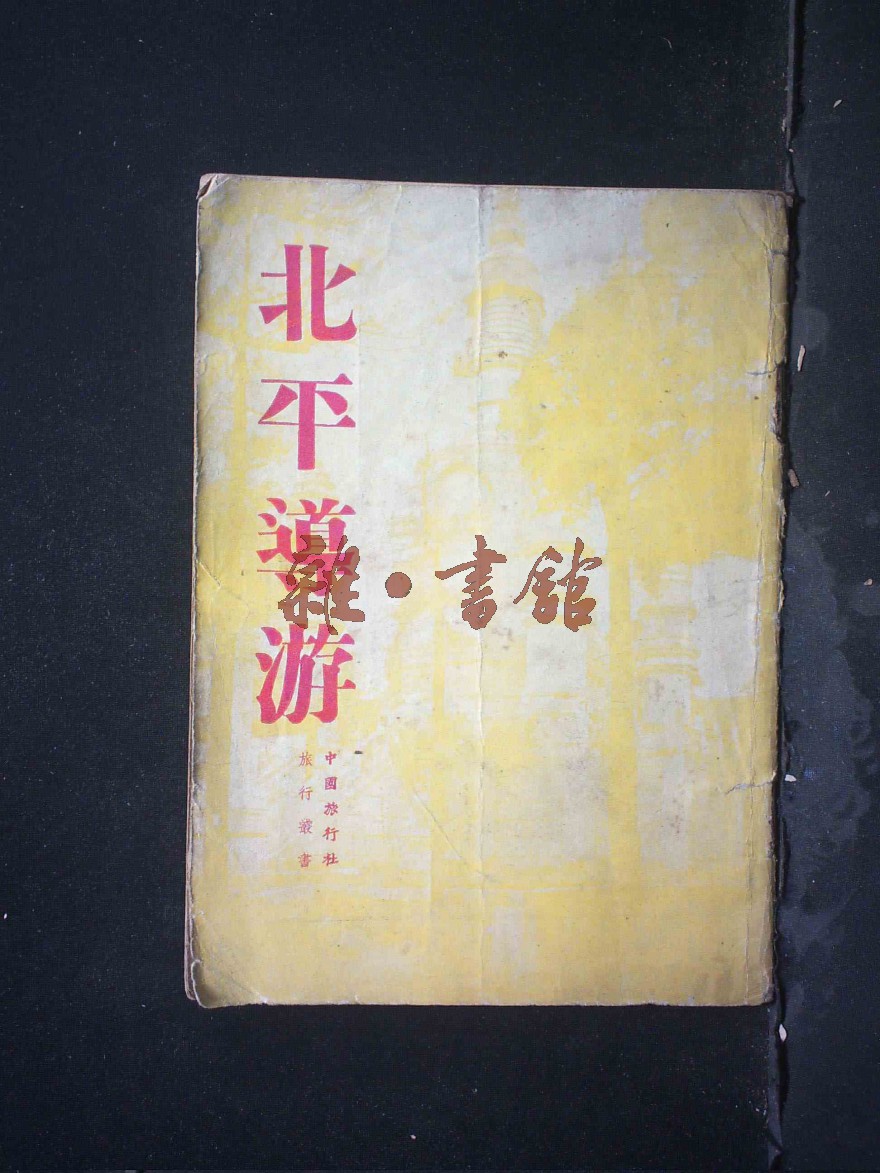 北平導游
中國旅行社
旅行叢書
雜·書館